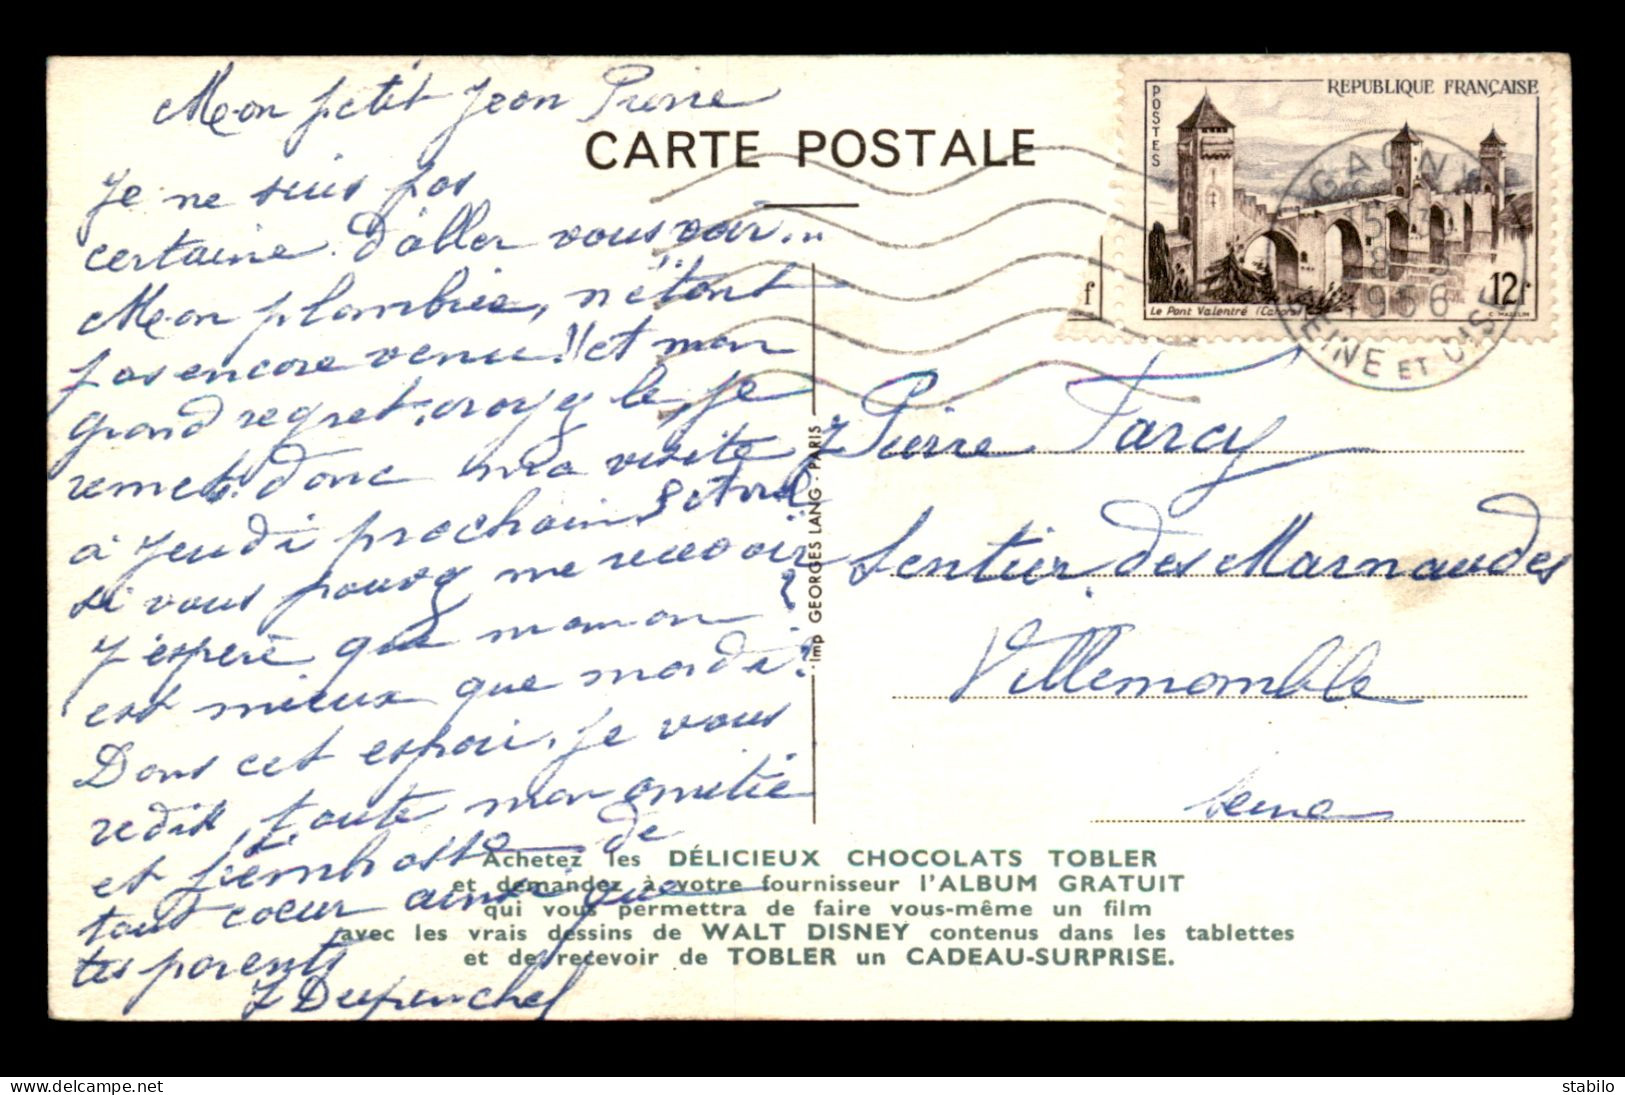 Mon petit Jean Pierre
CARTE POSTALE
Je ne suis pas
certaine d'aller vous voir...
Mon plombier, n'étant
pas encore venu !! et mon
grand regret, croyez le, je
remets donc ma visite
à Jeudi prochain,
si vous pouvez me recevoir
J'espère que maman ?
est mieux que mardi ?
Dans cet espoir, je vous
redis, toute mon amitié
et t'embrasse de
tout coeur ainsi que
tes parents
POSTES
REPUBLIQUE FRANÇAISE
Le Pont Valentré (Cahors)
12f
GAGNY
1956
SEINE ET OISE
f
Imp GEORGES LANG - PARIS
Pierre Farcy
Sentier des Marnaudes
Villemomble
Seine
Achetez les DÉLICIEUX CHOCOLATS TOBLER
et demandez à votre fournisseur l'ALBUM GRATUIT
qui vous permettra de faire vous-même un film
avec les vrais dessins de WALT DISNEY contenus dans les tablettes
et de recevoir de TOBLER un CADEAU-SURPRISE.
stabilo